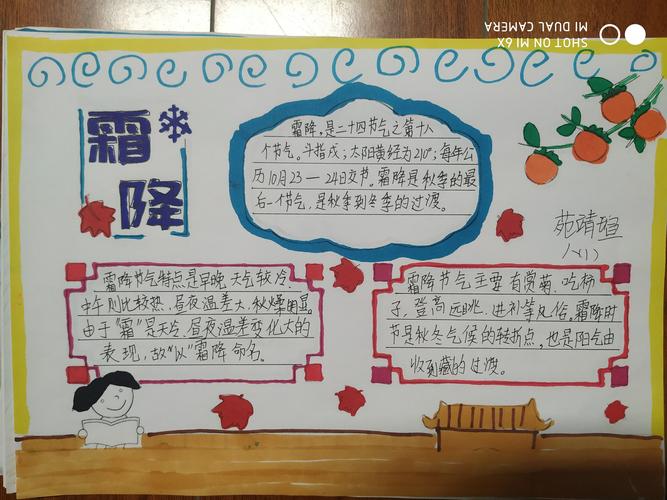 霜降
霜降,是二十四节气之第十八
个节气。斗指戌;太阳黄经为210°;每年公
历10月23—24日交节。霜降是秋季的最
后一个节气,是秋季到冬季的过渡。
苑靖瑄
八(1)
霜降节气特点是早晚天气较冷、
中午则比较热,昼夜温差大,秋燥明显。
由于“霜”是天冷、昼夜温差变化大的
表现,故以“霜降”命名。
霜降节气主要有赏菊、吃柿
子、登高远眺、进补等风俗。霜降时
节是秋冬气候的转折点,也是阳气由
收到藏的过渡。
SHOT ON MI 6X
MI DUAL CAMERA